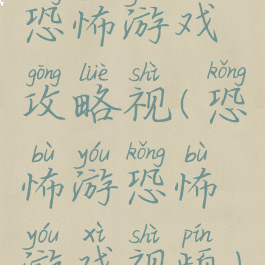 恐怖游戏
gōng lüè shì kǒng
攻略视(恐
bù yóu kǒng bù
怖游恐怖
yóu xì shì pín
游戏视频)